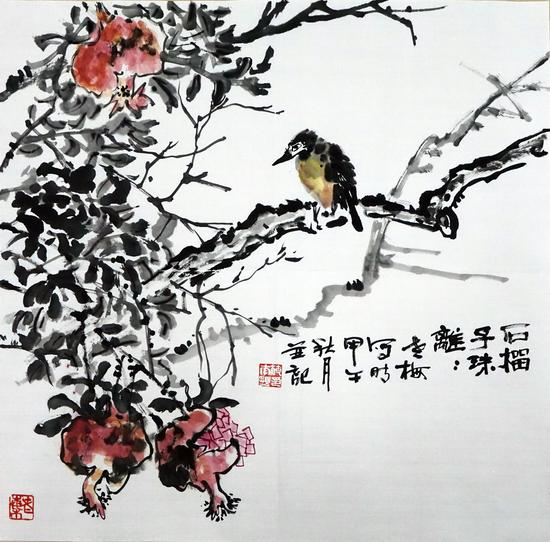 石榴
子珠
離:
梅
写時
甲午
秋月
並記